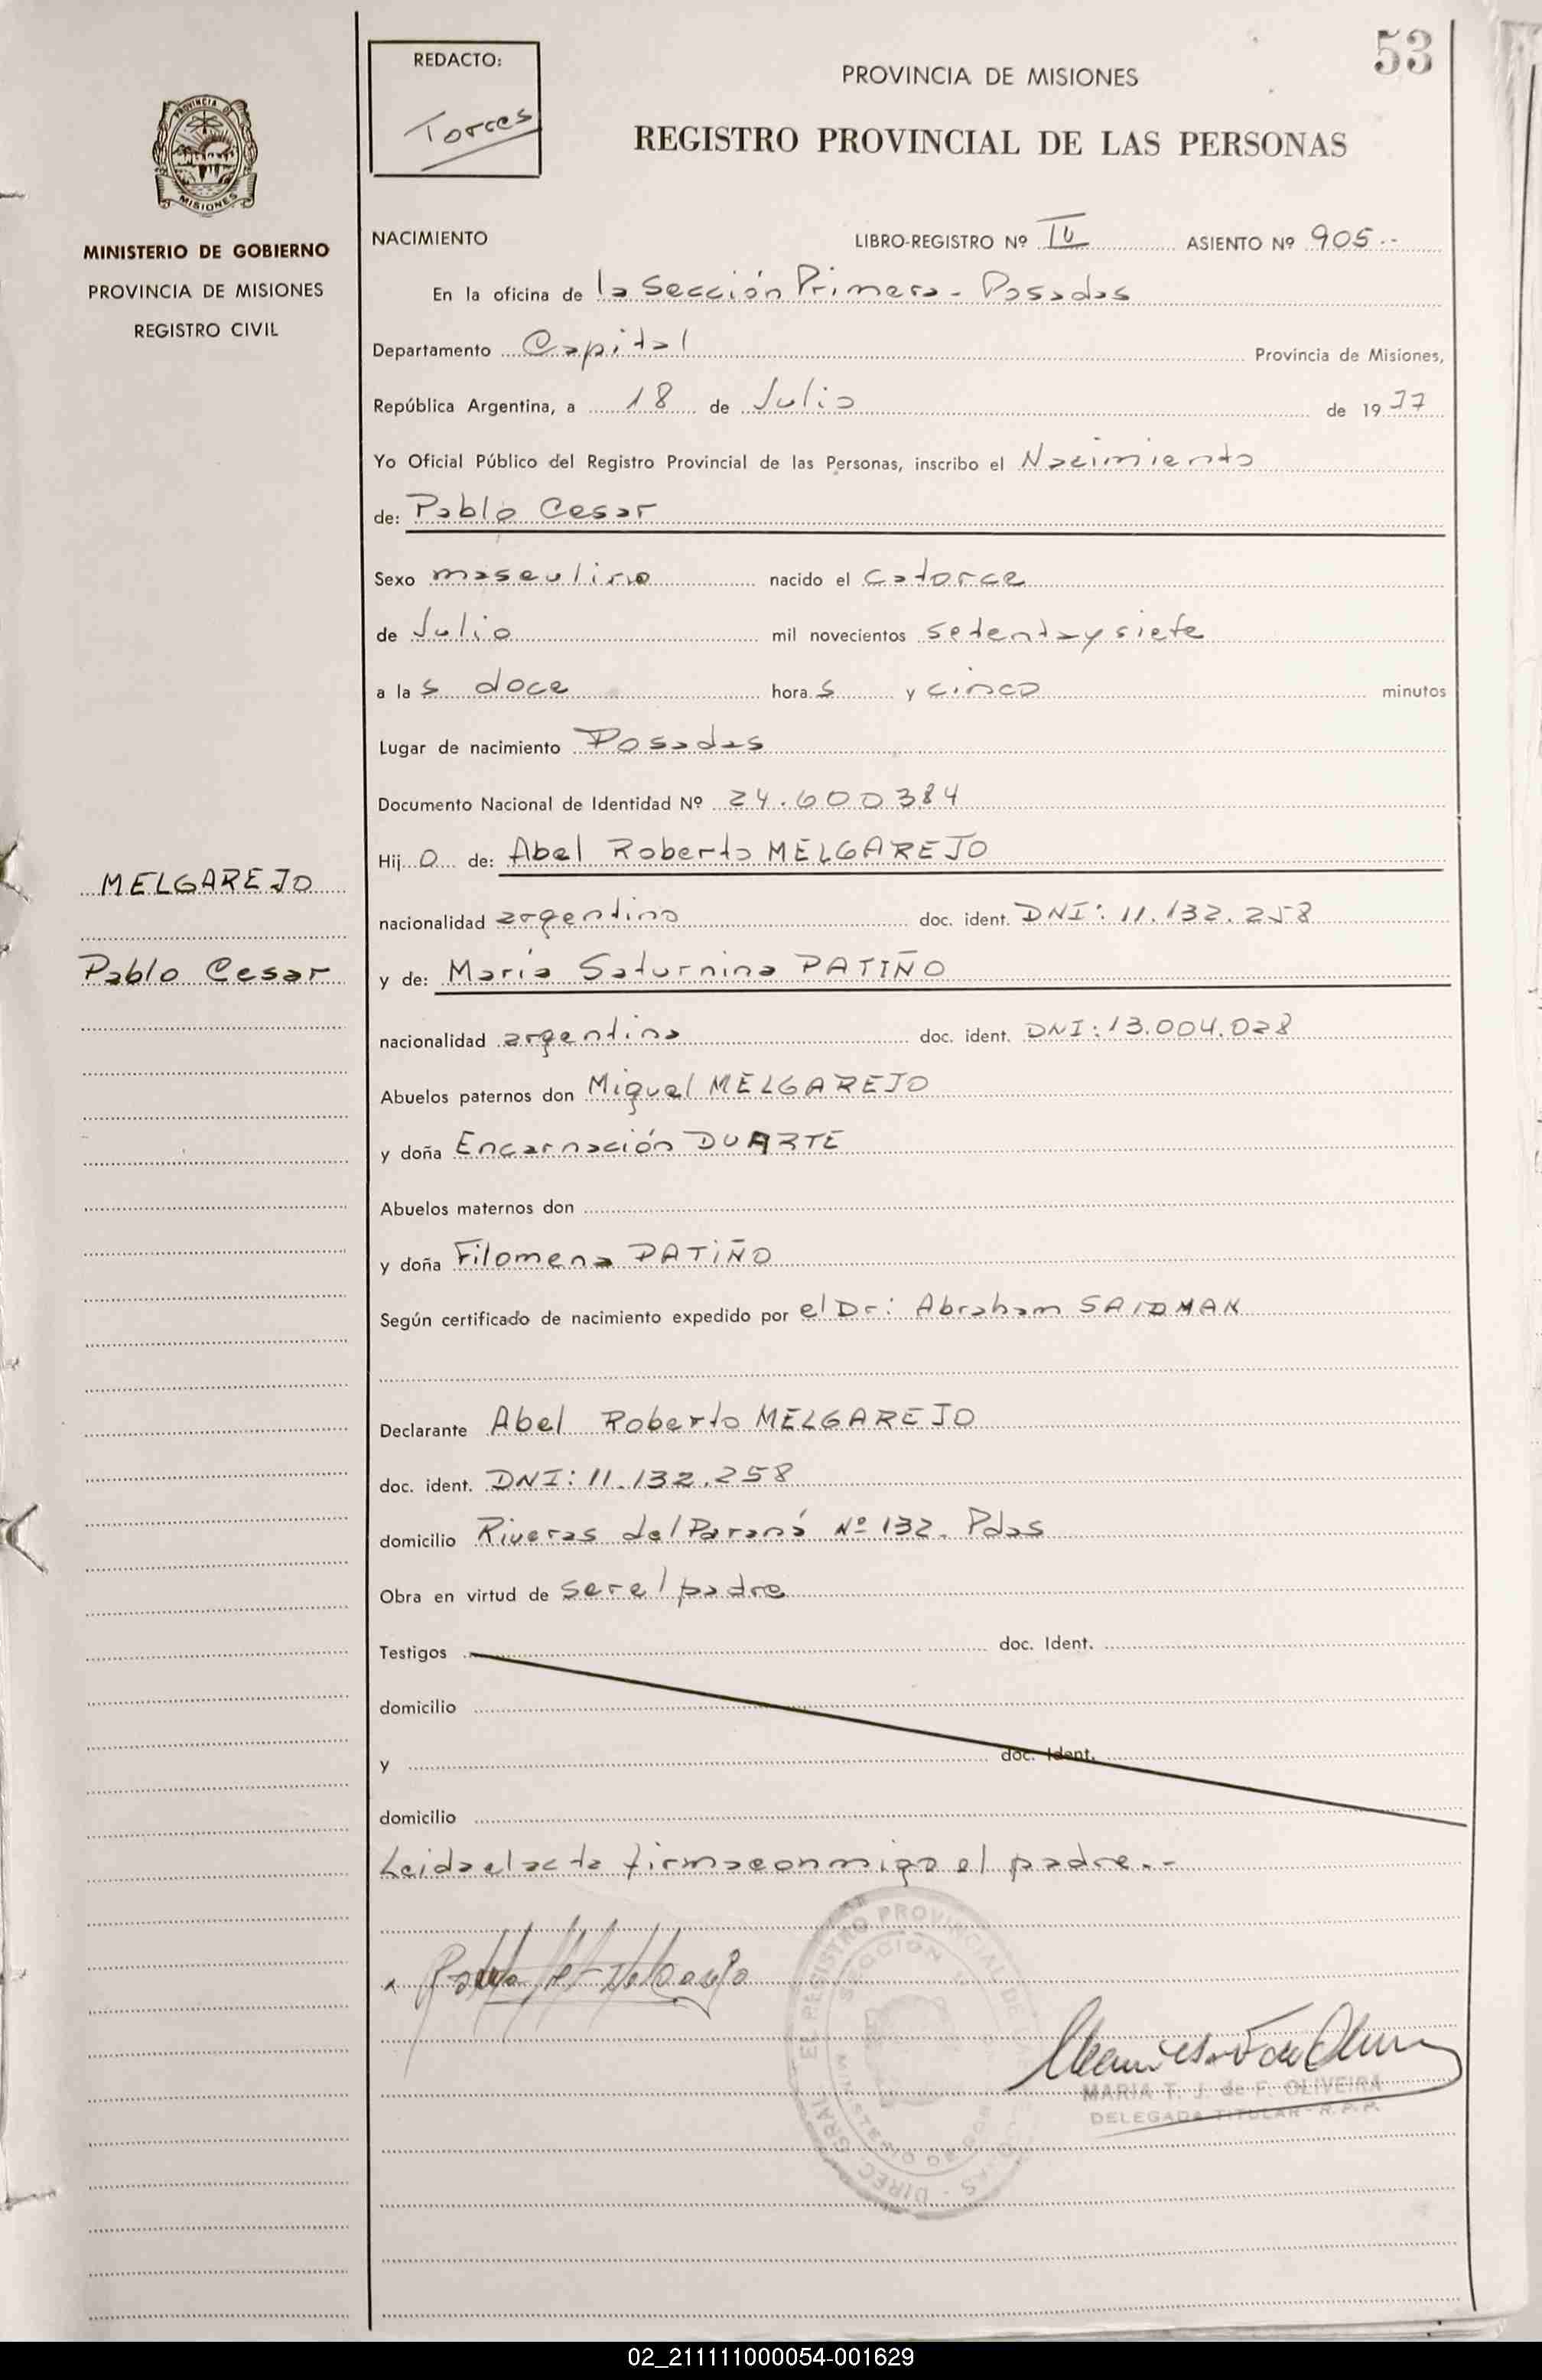 53
REDACTO:
Torres
PROVINCIA DE MISIONES
REGISTRO PROVINCIAL DE LAS PERSONAS
PROVINCIA DE
MISIONES
MINISTERIO DE GOBIERNO
PROVINCIA DE MISIONES
REGISTRO CIVIL
MELGAREJO
Pablo Cesar
NACIMIENTO LIBRO-REGISTRO Nº IV ASIENTO Nº 905--
En la oficina de la Sección Primera - Posadas
Departamento Capital Provincia de Misiones,
República Argentina, a 18 de Julio de 1977
Yo Oficial Público del Registro Provincial de las Personas, inscribo el Nacimiento
de: Pablo Cesar
Sexo masculino nacido el catorce
de Julio mil novecientos setenta y siete
a las doce horas y cinco minutos
Lugar de nacimiento Posadas
Documento Nacional de Identidad Nº 24.600384
Hijo de: Abel Roberto MELGAREJO
nacionalidad argentino doc. ident. DNI: 11.132.258
y de: María Saturnina PATIÑO
nacionalidad argentina doc. ident. DNI: 13.004.028
Abuelos paternos don Miguel MELGAREJO
y doña Encarnación DUARTE
Abuelos maternos don
y doña Filomena PATIÑO
Según certificado de nacimiento expedido por el Dr: Abraham SAIDMAN
Declarante Abel Roberto MELGAREJO
doc. ident. DNI: 11.132.258
domicilio Riveras del Paraná Nº 132. Pdas
Obra en virtud de ser el padre
Testigos doc. Ident.
domicilio
y doc. Ident.
domicilio
Leida el acta firma conmigo el padre.-
MARIA T. J. de F. OLIVEIRA
DELEGADA TITULAR - R.P.P.
02_211111000054-001629